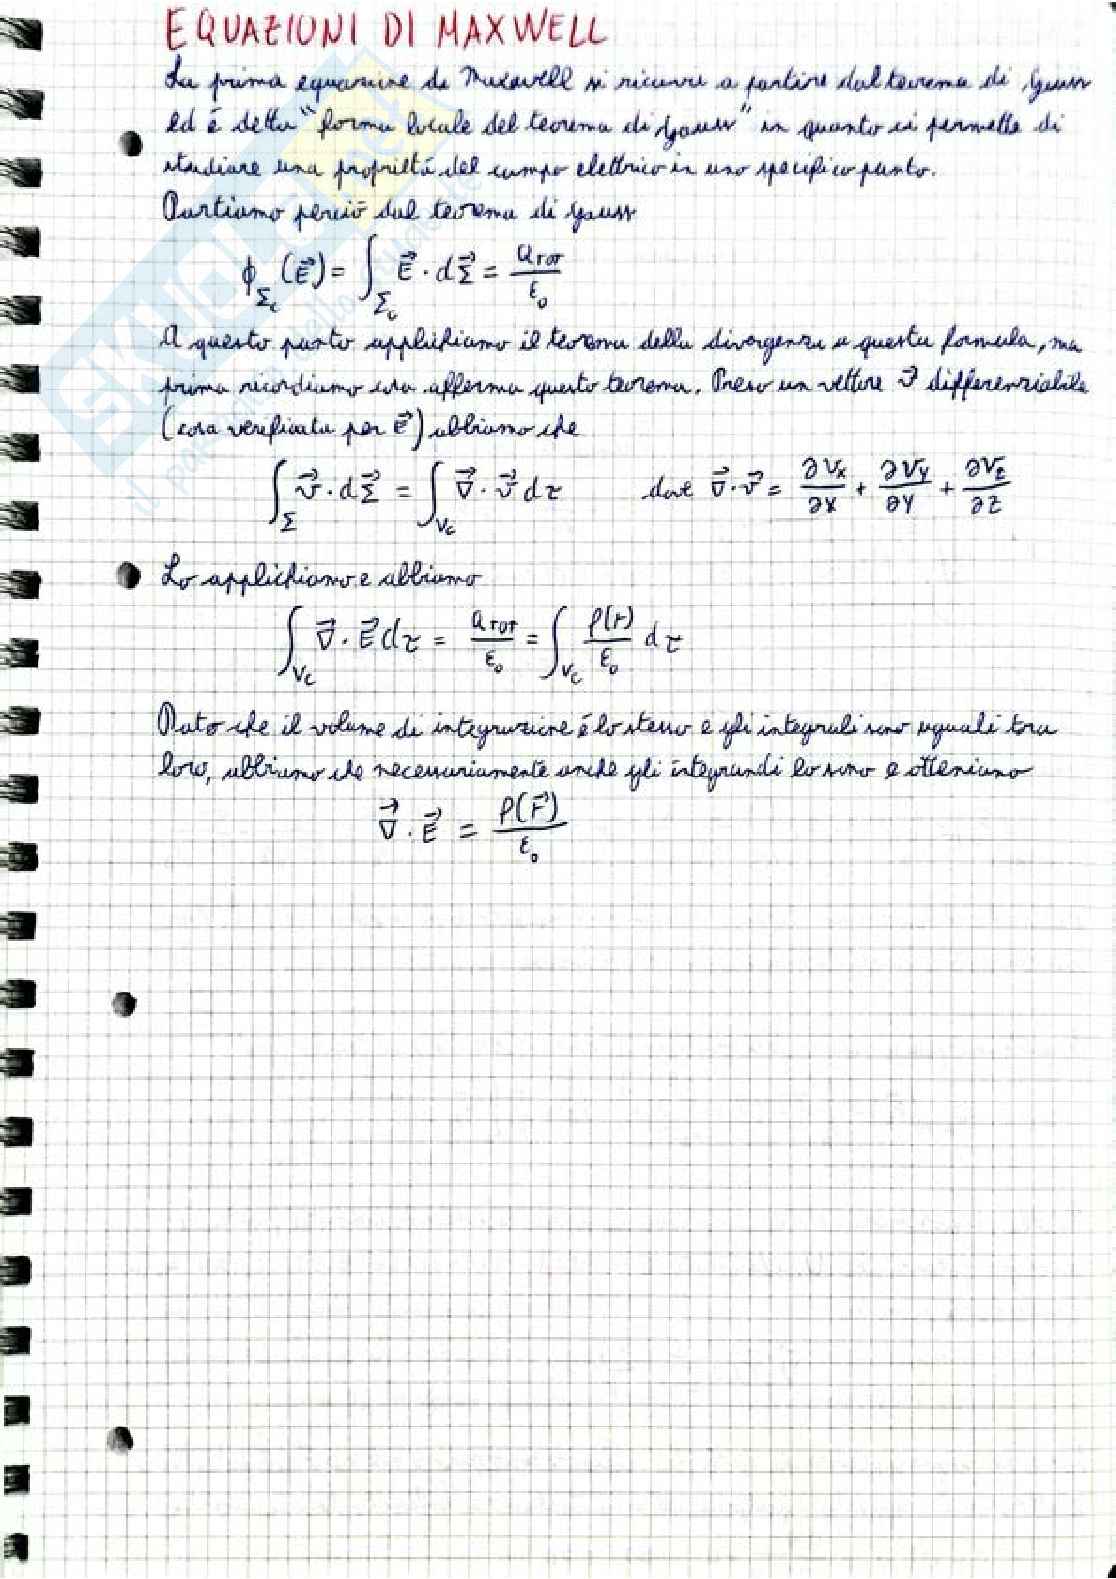 EQUAZIONI DI MAXWELL
La prima equazione di Maxwell si ricava a partire dal teorema di Gauss
ed è detta "forma locale del teorema di Gauss" in quanto ci permette di
studiare una proprietà del campo elettrico in uno specifico punto.
Partiamo perciò dal teorema di Gauss
ϕ_Σc (E⃗) = ∫_Σc E⃗ · dΣ⃗ = Q_TOT / ε₀
A questo punto applichiamo il teorema della divergenza a questa formula, ma
prima ricordiamo cosa afferma questo teorema. Preso un vettore v⃗ differenziabile
(cosa verificata per E⃗) abbiamo che
∫_Σ v⃗ · dΣ⃗ = ∫_Vc ∇⃗ · v⃗ dτ dove ∇⃗ · v⃗ = ∂Vx/∂x + ∂Vy/∂y + ∂Vz/∂z
Lo applichiamo e abbiamo
∫_Vc ∇⃗ · E⃗ dτ = Q_TOT / ε₀ = ∫_Vc ρ(r) / ε₀ dτ
Dato che il volume di integrazione è lo stesso e gli integrali sono uguali tra
loro, abbiamo che necessariamente anche gli integrandi lo sono e otteniamo
∇⃗ · E⃗ = ρ(r⃗) / ε₀
SKUOLA.net